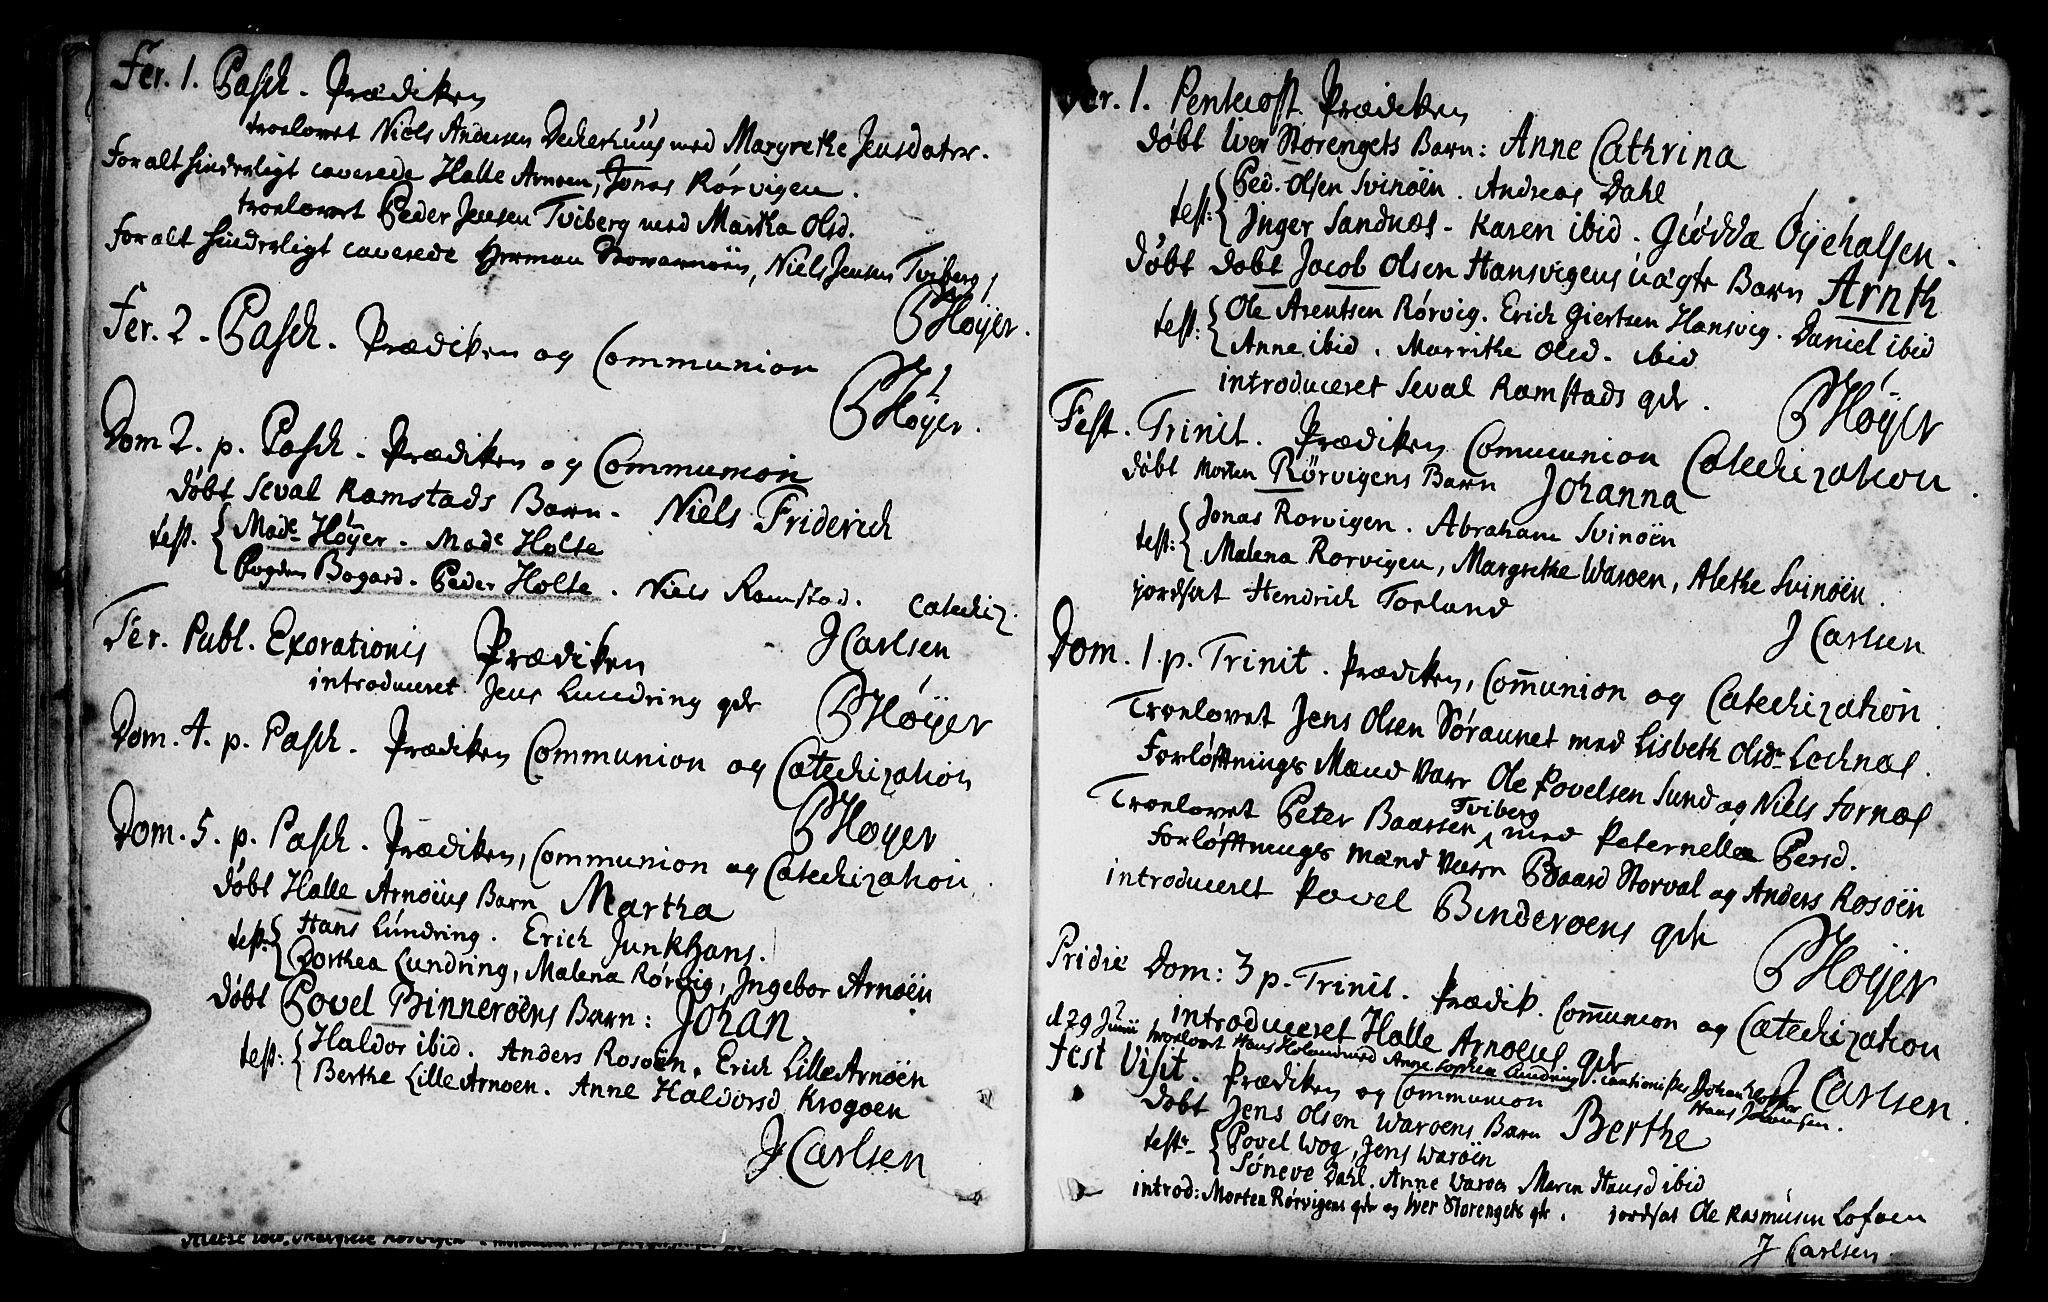 Fer. 1. Pasch. Prædiken
troelovet Niels Andersen Deckerhuus med Margrethe Jensdater.
For alt hinderligt caverede Halle Arnøen, Jonas Rørvigen.
troelovet Peder Jensen Tviberg med Martha Olsd.
For alt hinderligt caverede Herman, Niels Jensen Tviberg
PHøÿer.
Fer. 2. Pasch. Prædiken og Communion
PHøÿer.
Dom 2. p. Pasch. Prædiken og Communion
døbt Seval Ramstads Barn. Niels Friderich
test. Made Høÿer. Made Holte
Bogard. Peder Holte. Niels Ramstad. Catechiz.
J Carlsen
Fer. Publ. Exorationis Prædiken
introduceret Jens Lundring qde
PHøÿer
Dom. 4. p. Pasch. Prædiken Communion og Catechization
PHøyer
Dom. 5. p. Pasch. Prædiken, Communion og Catechization.
døbt Halle Arnøens Barn Martha
test: Hans Lundring. Erich Junkhans.
Dorthea Lundring, Malena Rørvig, Ingebor Arnøen
døbt Povel Binnerøens Barn: Johan
test: Haldor ibid. Anders Rosøen, Erich Lille Arnøen
Berthe Lille Arnøen. Anne Haldorsd Krogøen
J Carlsen
Fer. 1. Pentecost. Prædiken
døbt Iver Storengets Barn: Anne Cathrina
test: Ped. Olsen Svinøen. Andreas Dahl
Inger Sandnæs. Karen ibid. Giødda Øyehalsen.
døbt døbt Jacob Olsen Hansvigens uægte Barn Arnth
test: Ole Arentsen Rørvig. Erich Giertsen Hansvig. Daniel ibid
Anne ibid. Marrithe Olsd. ibid
introduceret Seval Ramstads qde.
PHøÿer
Fest. Trinit. Prædiken Communion Catechization.
døbt Morten Rørvigens Barn Johanna
test: Jonas Rorvigen. Abraham Svinøen
Malena Rorvigen, Margrethe Warøen, Alethe Svinøen.
jordsat Hendrich Torland
J Carlsen
Dom. 1. p. Trinit. Prædiken, Communion og Catechization.
Troelovet Jens Olsen Søraunet med Lisbeth Olsdr Lechnæs.
Forløftnings Mænd Varr Ole Povelsen Sund og Niels Fornæs
Troelovet Peter Baarsen Tviberg med Peternella Persd.
Forløftnings mænd Varr Baard Storval og Anders Rosøen
introduceret Povel Binderøens qde
PHøÿer
Pridie Dom: 3 p. Trinit. Prædik. Communion og Catechization
introduceret Halle Arnøens qde
J Carlsen.
d 29 Junii troelovet Hans Holand med Anne Sophia Lundring. cautionistes Johan
Hans Johansen.
Fest Visit. Prædiken og Communion
døbt Jens Olsen Warøens Barn Berthe
test: Povel Wog, Jens Warøen
Søneve Dahl. Anne Varøe Maren Hansd ibid
introd: Morten Rørvigens qde og Iver Storengets qde. jordsat Ole Rasmusen Loføen
J Carlsen.